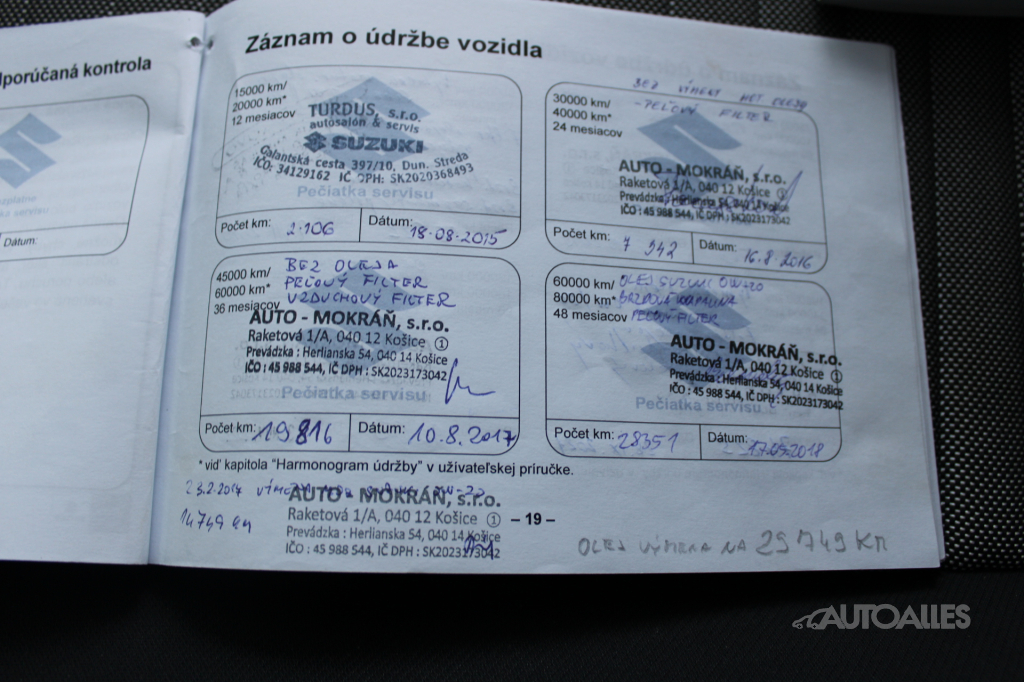 Záznam o údržbe vozidla
porúčaná kontrola
Dátum:
15000 km/
20000 km*
12 mesiacov
TURDUS, s.r.o.
autosalón & servis
SUZUKI
Galantská cesta 397/10, Dun. Streda
IČO: 34129162 IČ DPH: SK2020368493
Pečiatka servisu
Počet km: 2.106
Dátum: 18-08-2015
BEZ VÝMENY MOT OLEJA
- PEĽOVÝ FILTER
30000 km/
40000 km*
24 mesiacov
AUTO - MOKRÁŇ, s.r.o.
Raketová 1/A, 040 12 Košice ①
Prevádzka : Herlianska 54, 040 14 Košice
IČO : 45 988 544, IČ DPH : SK2023173042
Počet km: 7 942
Dátum: 16.8.2016
BEZ OLEJA
PEĽOVÝ FILTER
VZDUCHOVÝ FILTER
45000 km/
60000 km*
36 mesiacov
AUTO - MOKRÁŇ, s.r.o.
Raketová 1/A, 040 12 Košice ①
Prevádzka : Herlianska 54, 040 14 Košice
IČO : 45 988 544, IČ DPH : SK2023173042
Pečiatka servisu
Počet km: 19816
Dátum: 10.8.2017
OLEJ SUZUKI 0W-20
BRZDOVÁ KVAPALINA
PEĽOVÝ FILTER
60000 km/
80000 km*
48 mesiacov
AUTO - MOKRÁŇ, s.r.o.
Raketová 1/A, 040 12 Košice ①
Prevádzka : Herlianska 54, 040 14 Košice
IČO : 45 988 544, IČ DPH : SK2023173042
Pečiatka servisu
Počet km: 28351
Dátum: 17.05.2018
* viď kapitola "Harmonogram údržby" v užívateľskej príručke.
23.2.2017
14749 km
AUTO - MOKRÁŇ, s.r.o.
Raketová 1/A, 040 12 Košice ①
Prevádzka : Herlianska 54, 040 14 Košice
IČO : 45 988 544, IČ DPH : SK2023173042
– 19 –
OLEJ VÝMENA NA 29749 KM
AUTOALLES